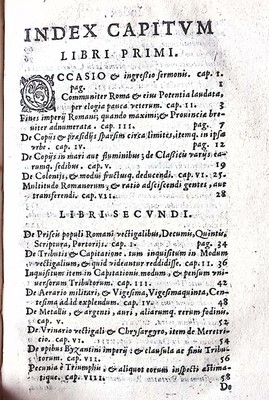 INDEX CAPITVM
LIBRI PRIMI.
OCCASIO & ingressio sermonis. cap. I.
pag. 1
Communiter Roma & eius Potentia laudata,
per elogia pauca veterum. cap. II. 3
Fines imperij Romani; quando maximi; & Prouinciæ breuiter
adnumeratæ. cap. III. pag. 7
De Copijs & præsidijs sparsim circa limites, itemq. in ipsa
vrbe. cap. IV. pag. 12
De Copijs in mari aut fluminibus; de Classicis varijs, earumq.
sedibus. cap. V. 19
De Colonijs, & modis fructuq. deducendi. cap. VI. 25.
Multitudo Romanorum; & ratio adsciscendi gentes, aut
transferendi. cap. VII. 28
LIBRI SECVNDI.
De Priscis populi Romani vectigalibus, Decumis,
Scriptura, Portorijs. cap. I. pag. 34
De Tributis & Capitatione. tum inquisitum in Modum
vectigalium, & quid viderentur reddidisse. cap. II. 36
Inquisitum item in Capitationis modum, & pensum vniuersorum
Tributorum. cap. III. 42
De Aerario militari, & Vigesima, Vigesimaquinta, Centesima
ad id expendendum. cap. IV. 48
De Metallis, & argenti, auri, aliarumq. rerum fodinis.
cap. V. 52
De Vrinario vectigali & Chrysargyro, item de Meretricio.
cap. VI. 54
De opibus Byzantini imperij: & clausula ac finis Tributorum.
cap. VII. 56
Pecunia è Triumphis, & aliquot eorum inspecti æstimatique.
cap. VIII. 58
De